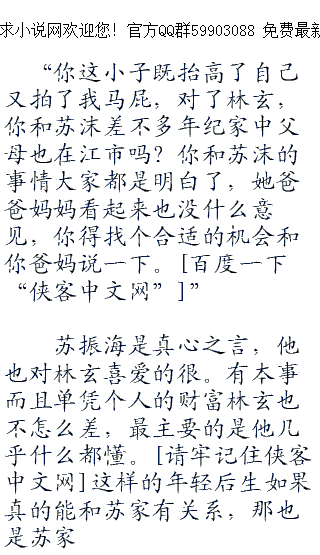 求小说网欢迎您！官方QQ群59903088 免费最新
“你这小子既抬高了自己
又拍了我马屁，对了林玄，
你和苏沫差不多年纪家中父
母也在江市吗？你和苏沫的
事情大家都是明白了，她爸
爸妈妈看起来也没什么意
见，你得找个合适的机会和
你爸妈说一下。[百度一下
“侠客中文网”]”
苏振海是真心之言，他
也对林玄喜爱的很。有本事
而且单凭个人的财富林玄也
不怎么差，最主要的是他几
乎什么都懂。[请牢记住侠客
中文网]这样的年轻后生如果
真的能和苏家有关系，那也
是苏家